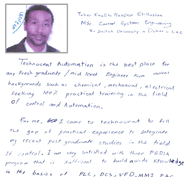 MSc. Control Systems Engineering
The British University
Technocent Automation is the best place for
any fresh graduate / mid level Engineer from
backgrounds such as chemical, mechanical, electrical
seeking practical learning in the field
of control and Automation.
For me, I came to technocent to fill
the gap of practical experience to integrate
my recent post graduate studies in the field
of control. I am very satisfied with these
program that is sufficient to build wide knowledge
in the basics of PLC, DCS, VFD, MMI